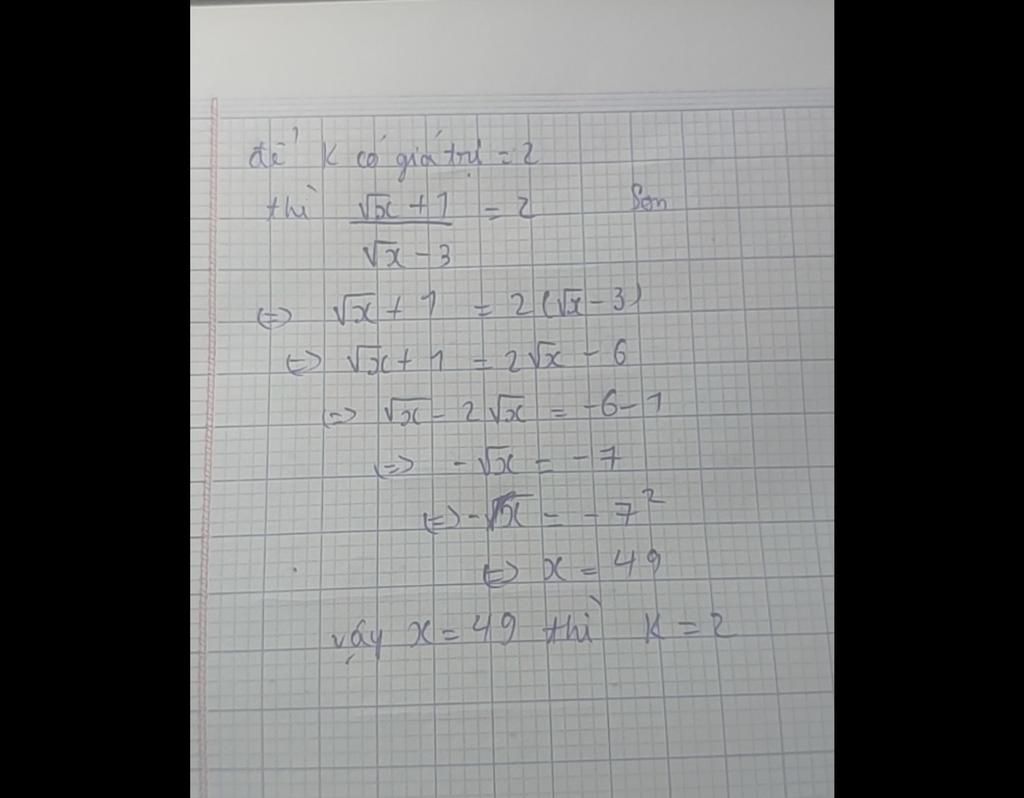 để K có giá trị = 2
thì (√x + 1)/(√x - 3) = 2
<=> √x + 1 = 2(√x - 3)
<=> √x + 1 = 2√x - 6
<=> √x - 2√x = -6-1
<=> -√x = -7
<=> -√x = -7²
<=> x = 49
vậy x = 49 thì K = 2